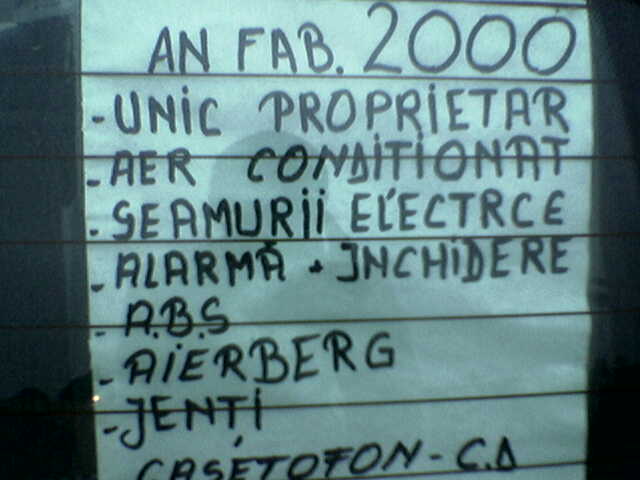 AN FAB. 2000
- UNIC PROPRIETAR
- AER CONDITIONAT
- GEAMURII ELECTRCE
- ALARMĂ + JNCHIDERE
- A.B.S
- AIERBERG
- JENȚI
CASETOFON - C.D